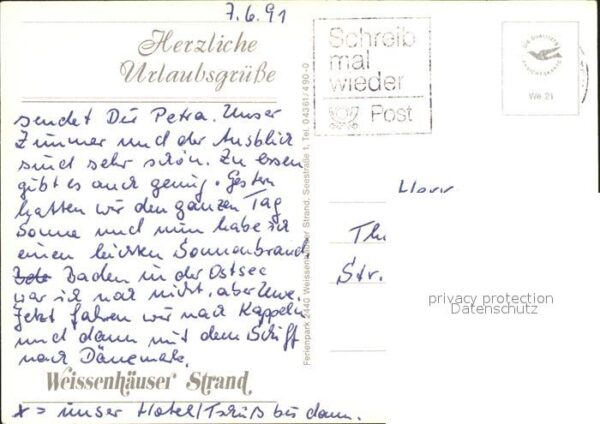 7.6.91
Herzliche
Urlaubsgrüße
sendet Dir Petra. Unser
Zimmer und der Ausblick
sind sehr schön. Zu essen
gibt es auch genug. Gestern
hatten wir den ganzen Tag
Sonne und nun habe ich
einen leichten Sonnenbrand.
Baden in der Ostsee
war ich noch nicht, aber Uwe.
Jetzt fahren wir nach Kappeln
und dann mit dem Schiff
nach Dänemark.
Weissenhäuser Strand
x = unser Hotel/Tschüß bis dann.
Ferienpark 2440 Weissenhäuser Strand, Seestraße 1, Tel. 04361/490-0
Schreib
mal
wieder
Post
We 21
Herr
Th
Str.
privacy protection
Datenschutz